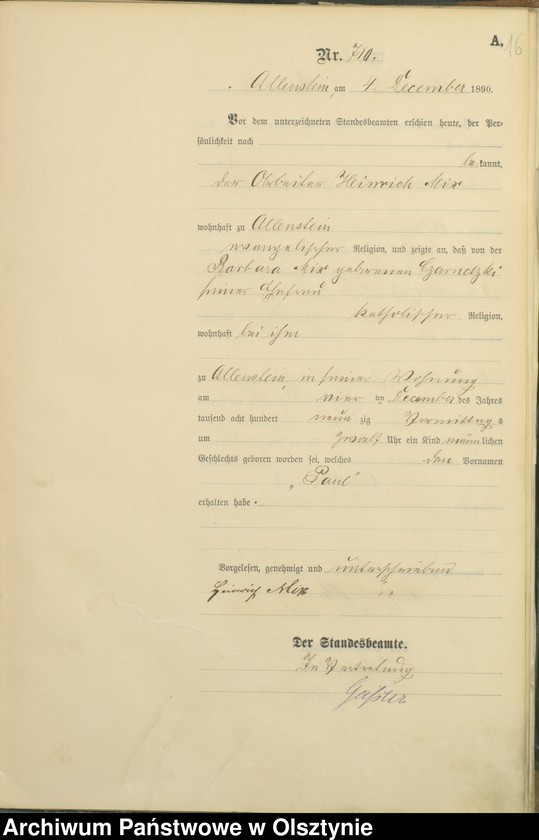 A.
16
Nr. 710.
Allenstein, am 4. December 1890.
Vor dem unterzeichneten Standesbeamten erschien heute, der Per-
sönlichkeit nach
be kannt,
der Arbeiter Heinrich Mix
wohnhaft zu Allenstein
evangelischer Religion, und zeigte an, daß von der
Barbara Mix geborenen Czarnetzki
seiner Ehefrau
katholischer Religion,
wohnhaft bei ihm
zu Allenstein, in seiner Wohnung
am vier ten December des Jahres
tausend acht hundert neun zig Vormittags
um zwölf Uhr ein Kind männlichen
Geschlechts geboren worden sei, welches den Vornamen
„Paul“
erhalten habe.
Vorgelesen, genehmigt und unterschrieben
Heinrich Mix
Der Standesbeamte.
In Vertretung
Archiwum Państwowe w Olsztynie